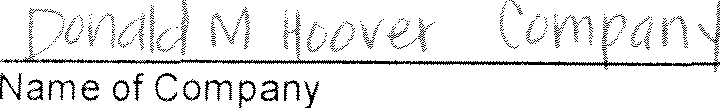 Donald M Hoover Company
Name of Company